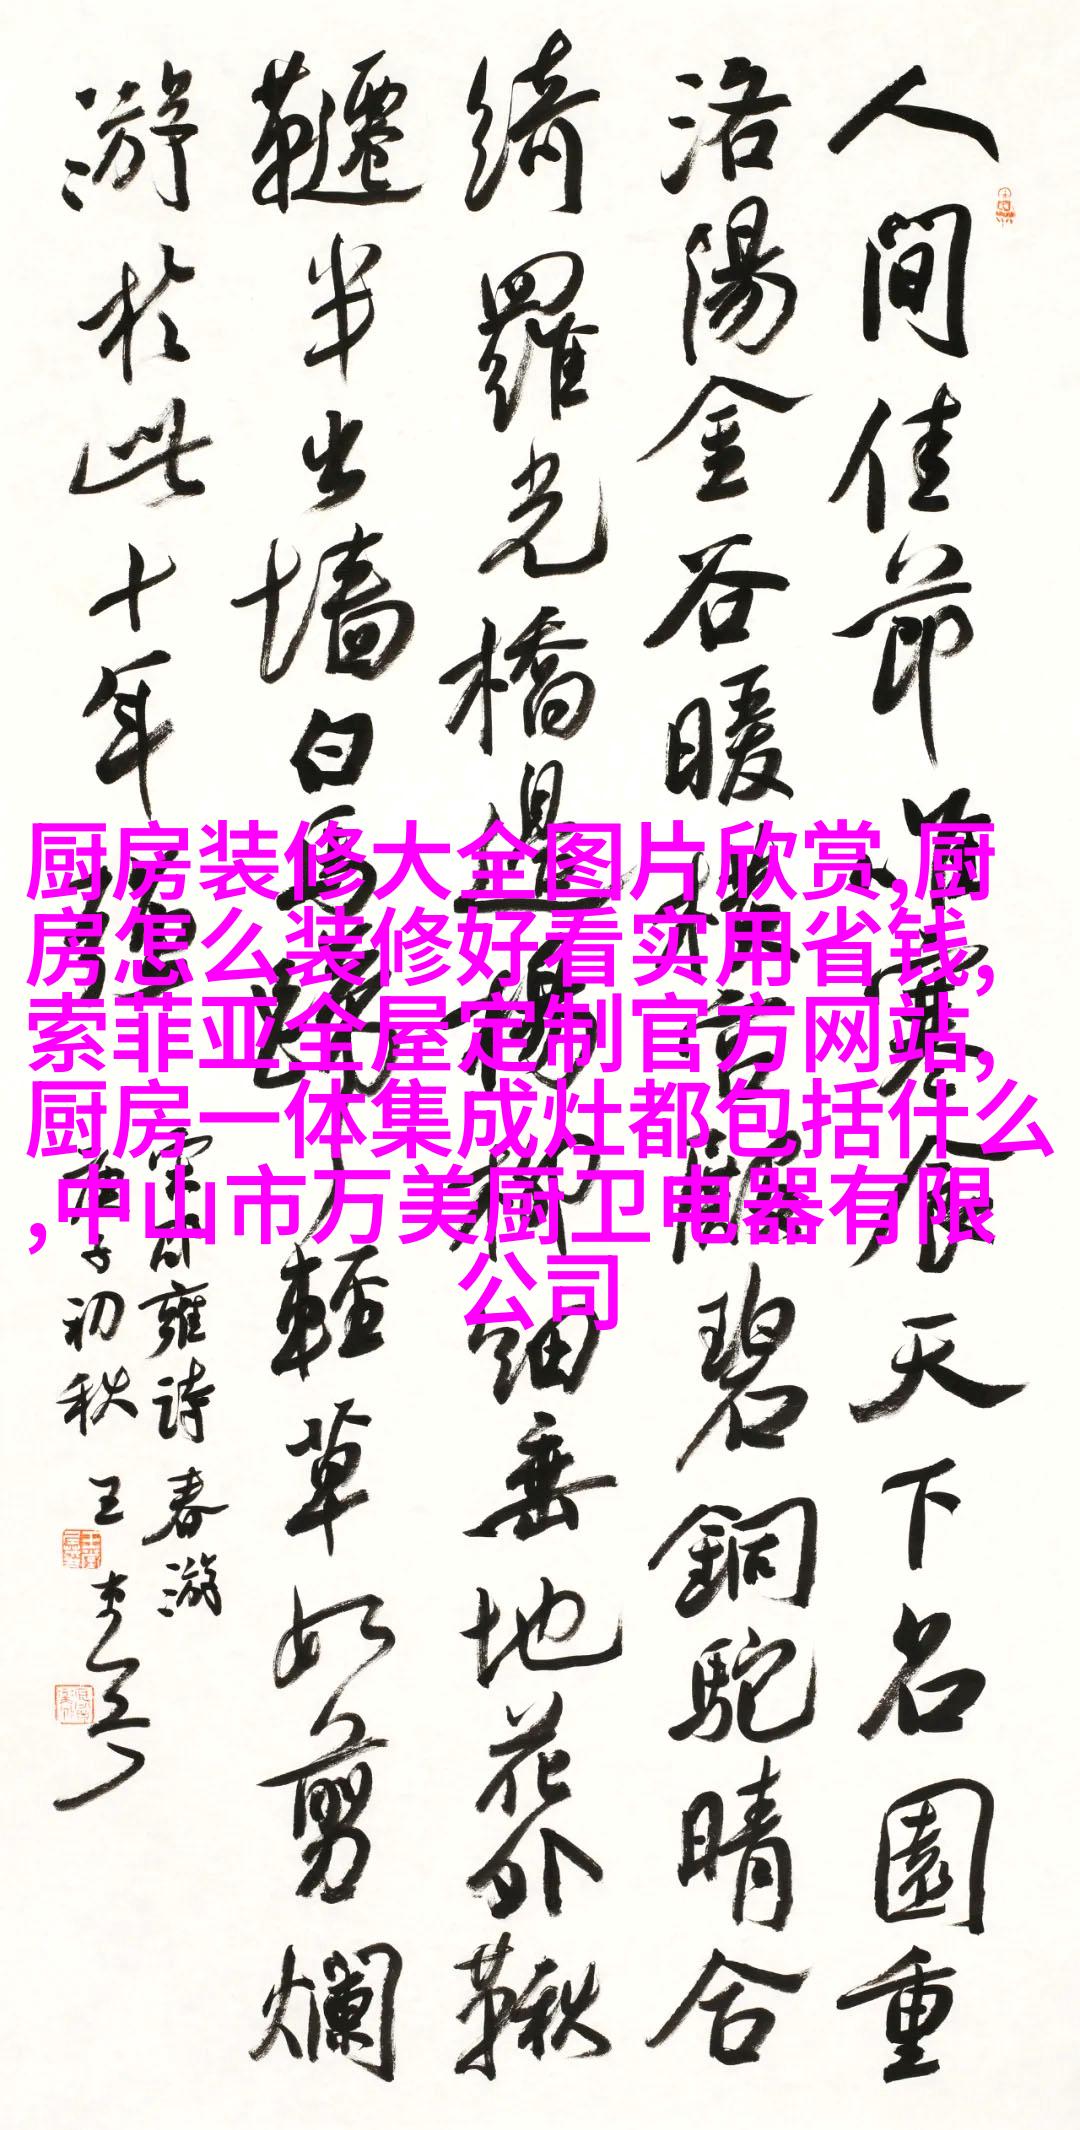 人間佳節唯寒食天下名園重
洛陽金谷暖橫宮殿碧銅駝晴合
綺羅光橋邊楊柳細垂地花外鞦
韆半出墻白馬蹄輕草如剪爛
游於此十年強
雍詩春游
子初秋 王
厨房装修大全图片欣赏,厨
房怎么装修好看实用省钱,
索菲亚全屋定制官方网站,
厨房一体集成灶都包括什么
,中山市万美厨卫电器有限
公司